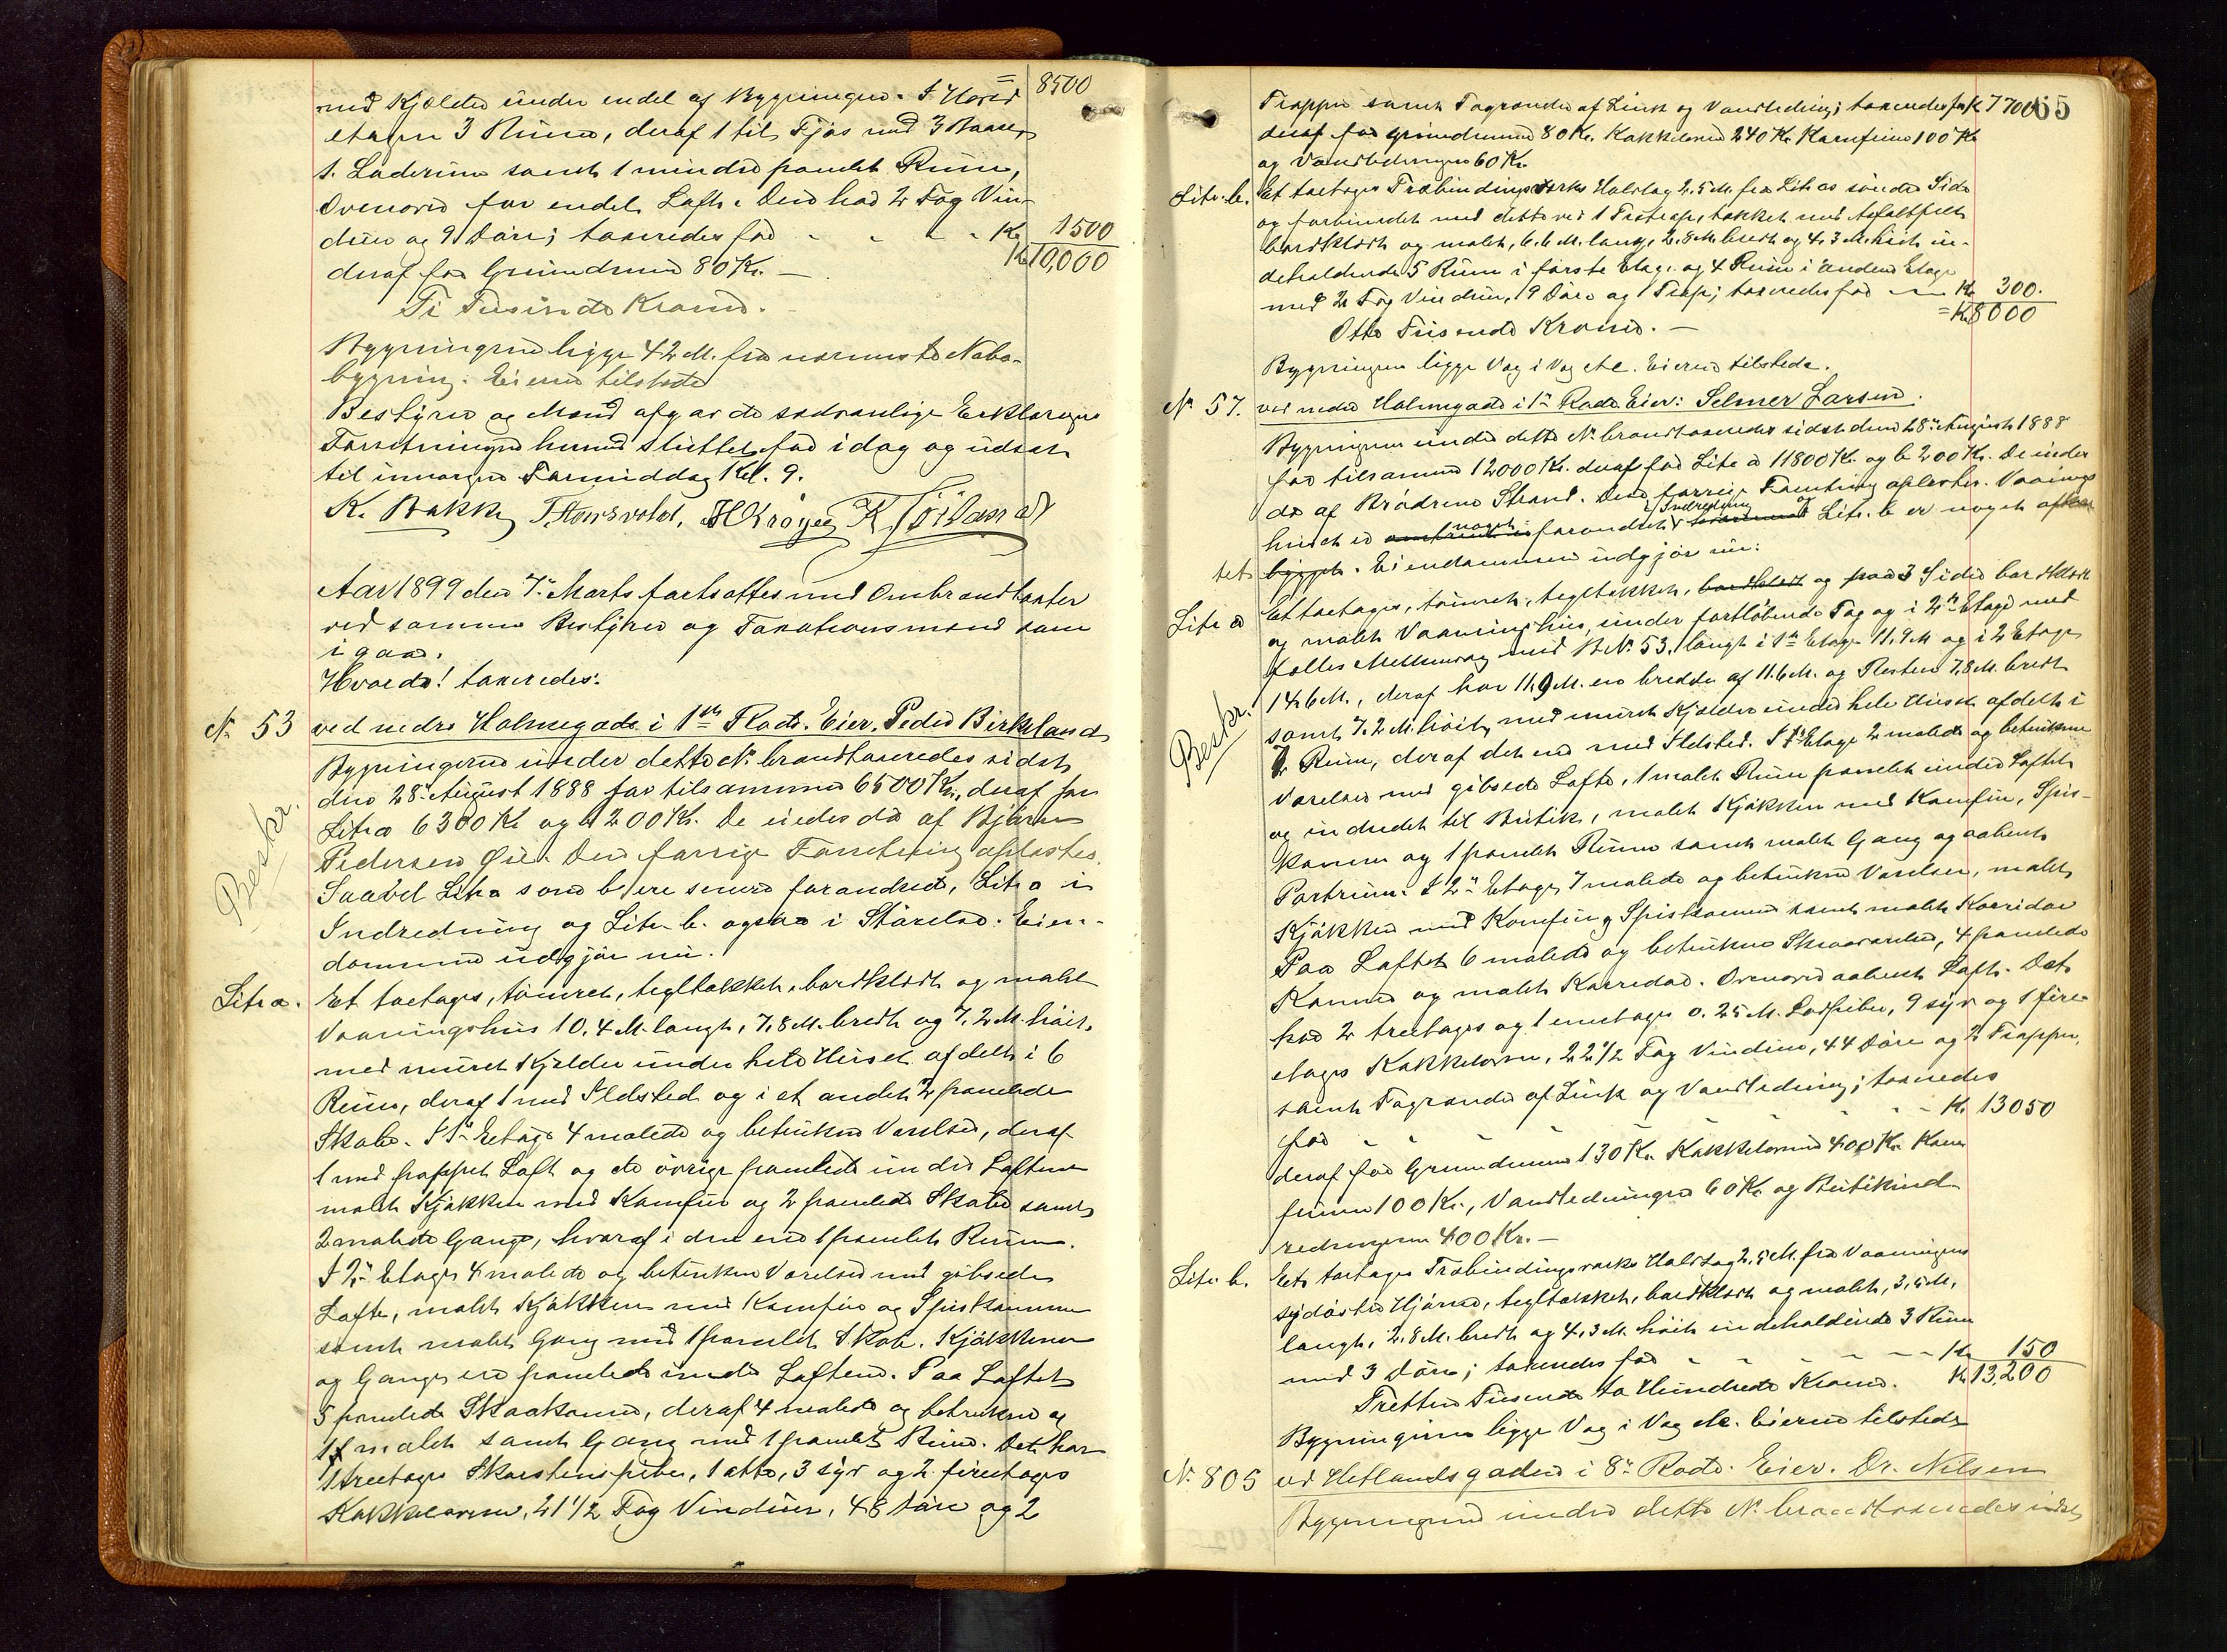 med Kjelder under endel af Bygningen. I Hoved 8500
etagen 3 Rum, deraf 1 til Fjøs med 3 Baase,
1 Laderum samt 1 mindre panelt Rum,
Ovenover for endel Loft. Den har 2 Fag Vin-
duer og 9 Døre; taxeredes for - - - - Kr. 1500
deraf for Grundmur 80 Kr. — Kr. 10,000
Ti Tusinde Kroner.
Bygningerne ligge 42 M. fra nærmeste Nabo-
bygning. Eieren tilstede
Bestyrer og Mænd afgav de sædvanlige Erklæringer
Forretningen hermed sluttet for idag og udsat
til imorgen Formiddag Kl. 9.
K. Bakke
Aar 1899 den 7de Marts fortsattes med Ombrandtaxter
ved samme Bestyrer og Taxationsmænd som
igaar.
Hvorda! taxeredes:
No 53 ved nedre Holmegade i 1ste Rode. Eier, Peder Birkeland
Bygningerne under dette No brandtaxeredes sidst
den 28de August 1888 for tilsammen 6500 Kr., deraf for
Litr a 6300 Kr og b 200 Kr. De eiedes da af Bjørn
Beskr.
Pedersen Øie. Den forrige Forretning oplæstes.
Saavel Litr a som b ere senere forandrede, Litr a i
Indredning og Litr. b. ogsaa i Størrelse. Eien-
dommen udgjør nu.
Litr a. Et toetages, tømret, tegltækket, bordklædt og malet
Vaaningshus 10,4 M. langt, 7,8 M. bredt og 7,2 M. høit,
med muret Kjelder under hele Huset afdelt i 6
Rum, deraf 1 med Ildsted og i et andet 2 panelede
Skabe. I 1ste Etage 4 malede og betrukne Værelser, deraf
1 med pappet Loft og de øvrige panelede under Loftene
malet Kjøkken med Komfur og 2 panelede Skabe samt
2 malede Gange, hvoraf i den ene 1 panelet Rum.
I 2den Etage 4 malede og betrukne Værelser med gibsede
Lofte, malet Kjøkken med Komfur og Spiskammer
samt malet Gang med 1 panelet Skab. Kjøkkener
og Gange ere panelede under Loftene. Paa Loftet
5 panelede Skraakamre, deraf 4 malede og betrukne og
1 malet samt Gang med 1 panelet Rum. Det har
1 treetages Skorstenspibe, 1 otte, 3 syv og 2 fireetages
Kakkelovne, 21 1/2 Fag Vinduer, 48 Døre og 2
Trapper samt Tagrender af Zink og Vandledning; taxeredes for Kr 7700 65
deraf for Grundmur 80 Kr. Kakkelovne 240 Kr Komfurer 100 Kr
og Vandledningen 60 Kr.
Litr. b. Et toetages Træbindingsverks Halvtag 2.5 M. fra Litr as søndre Side
og forbundet med dette ved 1 Trætrap, tækket med Asfaltfilt
bordklædt og malet, 6.6 M. langt, 2.8 M. bredt og 4.3 M. høit in-
deholdende 5 Rum i første Etage og 4 Rum i anden Etage
med 2 Fag Vinduer, 19 Døre og 1 Trap; taxeredes for — Kr 300.
Kr 8000
Otte Tusende Kroner. —
Bygningerne ligge Væg i Væg etc. Eieren tilstede.
No 57. ved nedre Holmegade i 1ste Rode. Eier: Selmer Larsen.
Bygningerne under dette No brandtaxeredes sidst den 28de August 1888
for tilsammen 12000 Kr. deraf for Litr a 11800 Kr. og b 200 Kr. De eiedes
da af Brødrene Strand. Den forrige Forretning oplæstes. Vaanings
huset er noget forandret i Indredning og Litr. b er noget
tet bygget. Eiendommen udgjør nu:
Litr a Et toetages, tømret, tegltækket, bordklædt og paa 3 Sider bordklædt
og malet Vaaningshus, under fortløbende Tag og i 2den Etage med
fælles Mellemvæg med BNo. 53. langt i 1ste Etage 11,9 M og i 2 Etage
14,6 M., deraf har 11,9 M. en bredde af 11.6 M. og Resten 7,8 M. bredt
Beskr.
samt 7.2 M. høit, med muret Kjelder under hele Huset afdelt i
Rum, deraf det ene med Ildsted. I 1ste Etage 2 malede og betrukne
Værelser med gibsede Lofte, 1 malet Rum panelet under Loftet
og indredet til Butik, malet Kjøkken med Komfur, Spis-
kammer og 1 panelet Rum samt malet Gang og aabent
Portrum. I 2den Etage 7 malede og betrukne Værelser, malet
Kjøkken med Komfur og Spiskammer samt malet Korridor
Paa Loftet 6 malede og betrukne Skraaværelser, 4 panelede
Kamre og malet Korridor. Ovenover aabent Loft. Det
har 2 treetages og 1 eenetages 0.25 M. Lodpiber, 9 syv og 1 fire-
etages Kakkelovne, 22 1/2 Fag Vinduer, 44 Døre og 2 Trapper,
samt Tagrender af Zink og Vandledning; taxeredes
for - - - - - - Kr. 13050
deraf for Grundmuren 130 Kr. Kakkelovnene 400 Kr. Kom-
furene 100 Kr., Vandledningen 60 Kr. og Butikind-
redningen 400 Kr. —
Litr. b. Et toetages Træbindingsværks Halvtag 2,5 M. fra Vaaningens
sydøstre Hjørne, tegltækket, bordklædt og malet, 3,5 M.
langt, 2,8 M. bredt og 4,3 M. høit indeholdende 3 Rum
med 3 Døre; taxeredes for - - - - - Kr 150
Tretten Tusende to Hundrede Kroner. Kr 13,200
Bygningerne ligge Væg i Væg etc. Eieren tilstede
No 805 ved Hetlandsgaden i 8de Rode. Eier. Dr. Nilsen
Bygningerne under dette No brandtaxeredes sidst